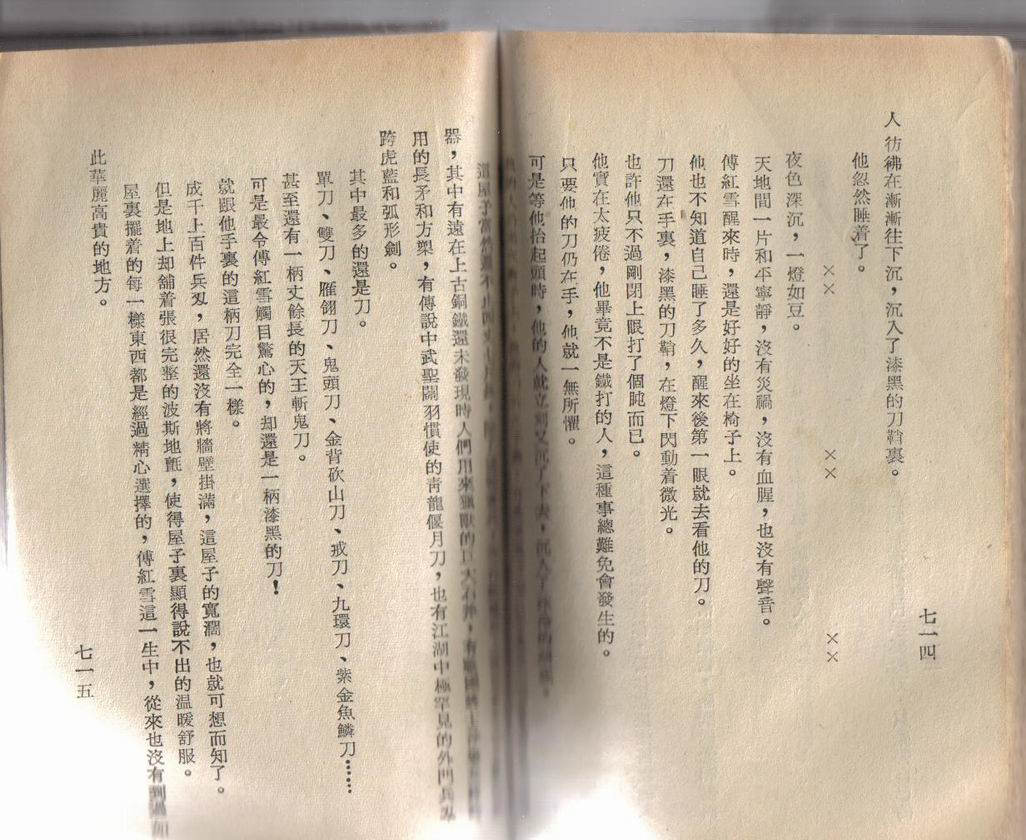 七一四
人彷彿在漸漸往下沉，沉入了漆黑的刀鞘裏。
他忽然睡着了。
×× ×× ××
夜色深沉，一燈如豆。
天地間一片和平寧靜，沒有災禍，沒有血腥，也沒有聲音。
傅紅雪醒來時，還是好好的坐在椅子上。
他也不知道自己睡了多久，醒來後第一眼就去看他的刀。
刀還在手裏，漆黑的刀鞘，在燈下閃動着微光。
也許他只不過剛閉上眼打了個盹而已。
他實在太疲倦，他畢竟不是鐵打的人，這種事總難免會發生的。
只要他的刀仍在手，他就一無所懼。
可是等他抬起頭時，他的人就立刻又沉了下去，沉入了
這屋子當然
器，其中有遠在上古銅鐵還未發現時人們用來獵獸的巨大石斧，有戰國
用的長矛和方槊，有傳說中武聖關羽慣使的青龍偃月刀，也有江湖中極罕見的外門兵刄
跨虎藍和弧形劍。
其中最多的還是刀。
單刀、雙刀、雁翎刀、鬼頭刀、金背砍山刀、戒刀、九環刀、紫金魚鱗刀……
甚至還有一柄丈餘長的天王斬鬼刀。
可是最令傅紅雪觸目驚心的，却還是一柄漆黑的刀！
就跟他手裏的這柄刀完全一樣。
成千上百件兵刄，居然還沒有將牆壁掛滿，這屋子的寬濶，也就可想而知了。
但是地上却舖着張很完整的波斯地氈，使得屋子裏顯得說不出的溫暖舒服。
屋裏擺着的每一樣東西都是經過精心選擇的，傅紅雪這一生中，從來也沒有到過如
此華麗高貴的地方。
七一五